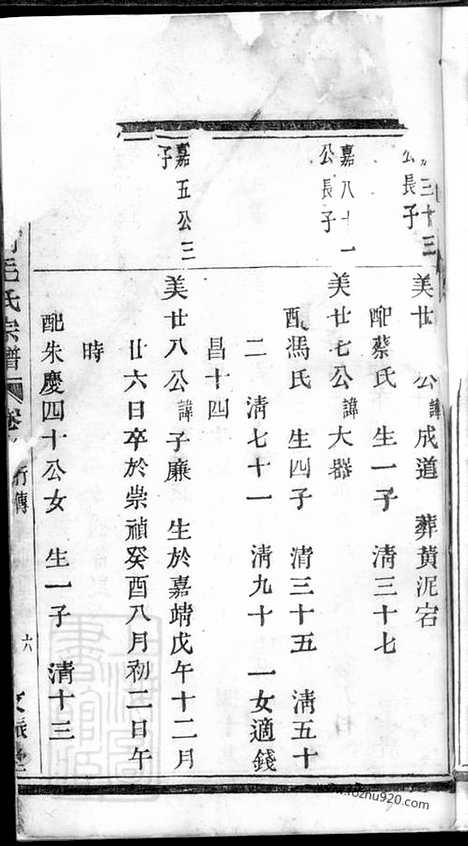 三十三
公長子
美廿 公諱成道 葬黃泥宕
配蔡氏 生一子 淸三十七
嘉八十一
公長子
美廿七公諱大器
配馮氏 生四子 淸三十五 淸五十
二 淸七十一 淸九十 一女適錢
昌十四
嘉五公三
子
美廿八公諱子廉 生於嘉靖戊午十二月
廿六日卒於崇禎癸酉八月初二日午
時
配朱慶四十公女 生一子 淸十三
毛氏宗譜 卷 行傳 六
www.fozhu920.com